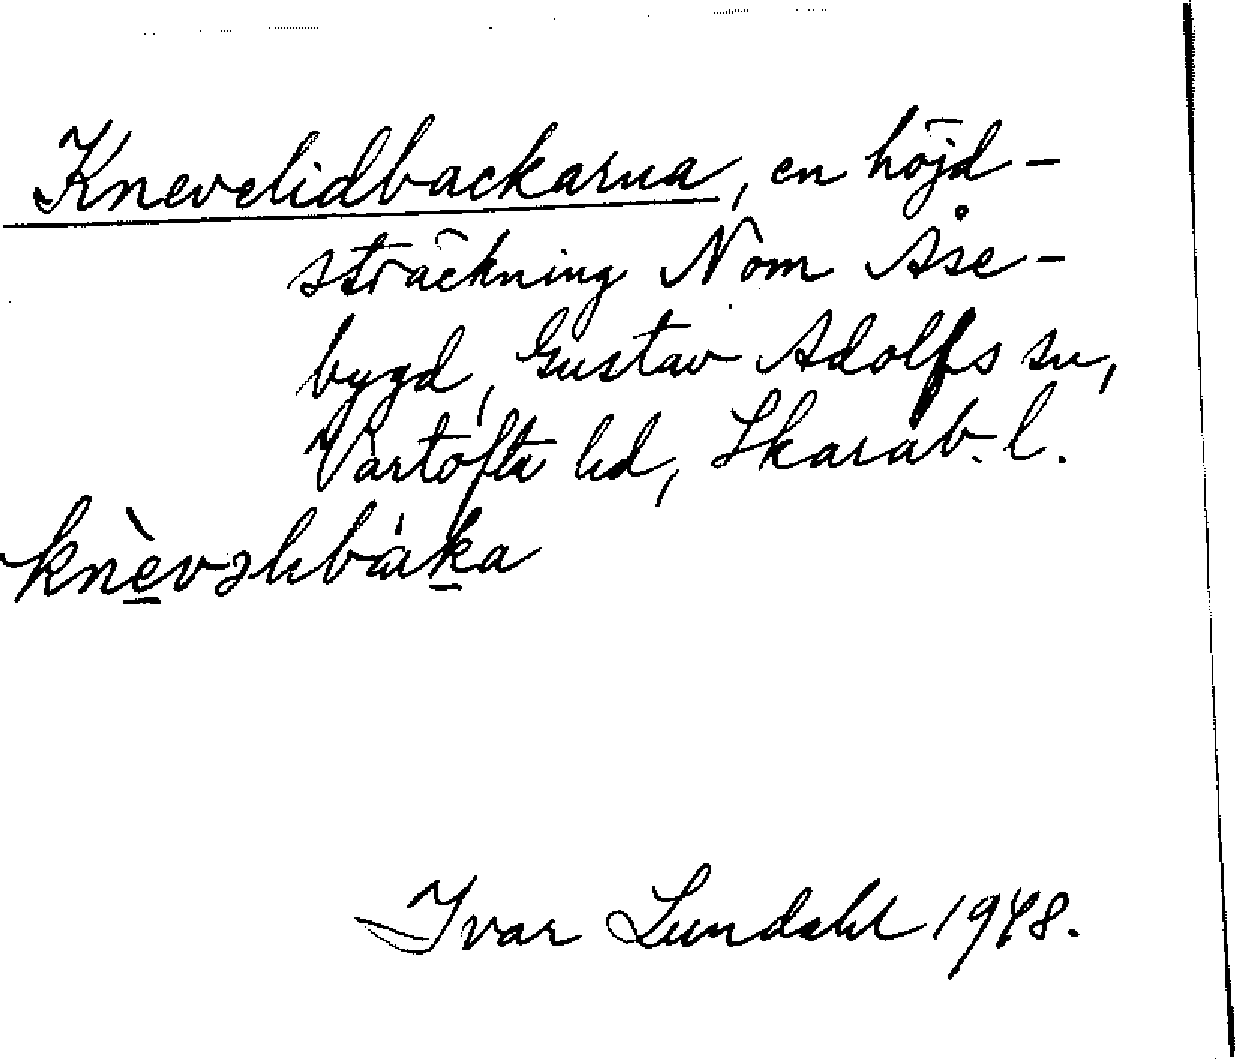 Knevelidbackarna, en höjd-
sträckning N om Åse-
bygd, Gustav Adolfs sn,
Vartofta hd, Skarab. l.
knèvəlıbáka
Ivar Lundahl 1948.